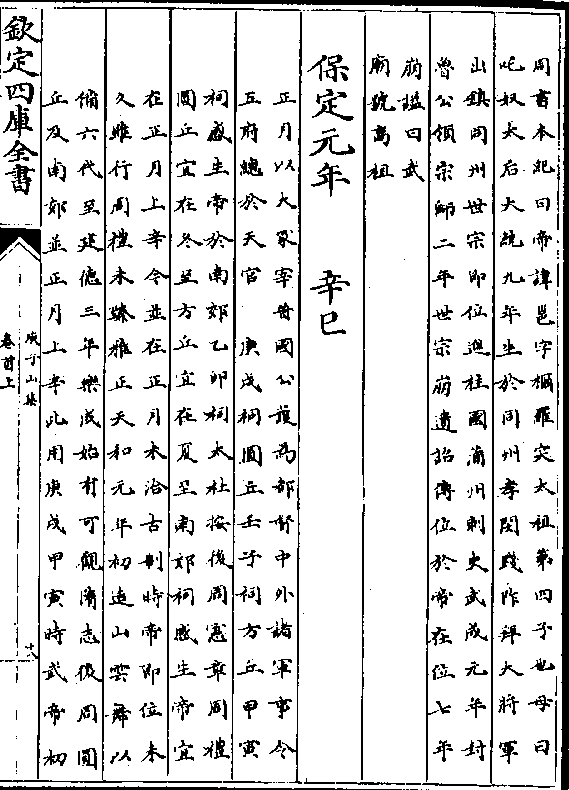 周書本紀曰帝諱邕字檷羅突太祖第四子也母曰
叱奴太后大統九年生於同州孝閔踐阼拜大將軍
出鎮同州世宗即位進柱國蒲州刺史武成元年封
魯公領宗師二年世宗崩遺詔傳位於帝在位七年
崩諡曰武
廟號高祖
保定元年 辛巳
正月以大冢宰晉國公護為都督中外諸軍事令
五府總於天官 庚戌祠圓丘壬子祠方丘甲寅
祠感生帝於南郊乙卯祠太社按後周憲章周禮
圓丘宜在冬至方丘宜在夏至南郊祠感生帝宜
在正月上辛今並在正月未洽古制時帝即位未
久雖行周禮未臻雅正天和元年初造山雲舞以
備六代至建德三年樂成始有可觀隋志後周圓
丘及南郊並正月上辛此用庚戌甲寅時武帝初
欽定四庫全書
庾子山集
卷首上
十八